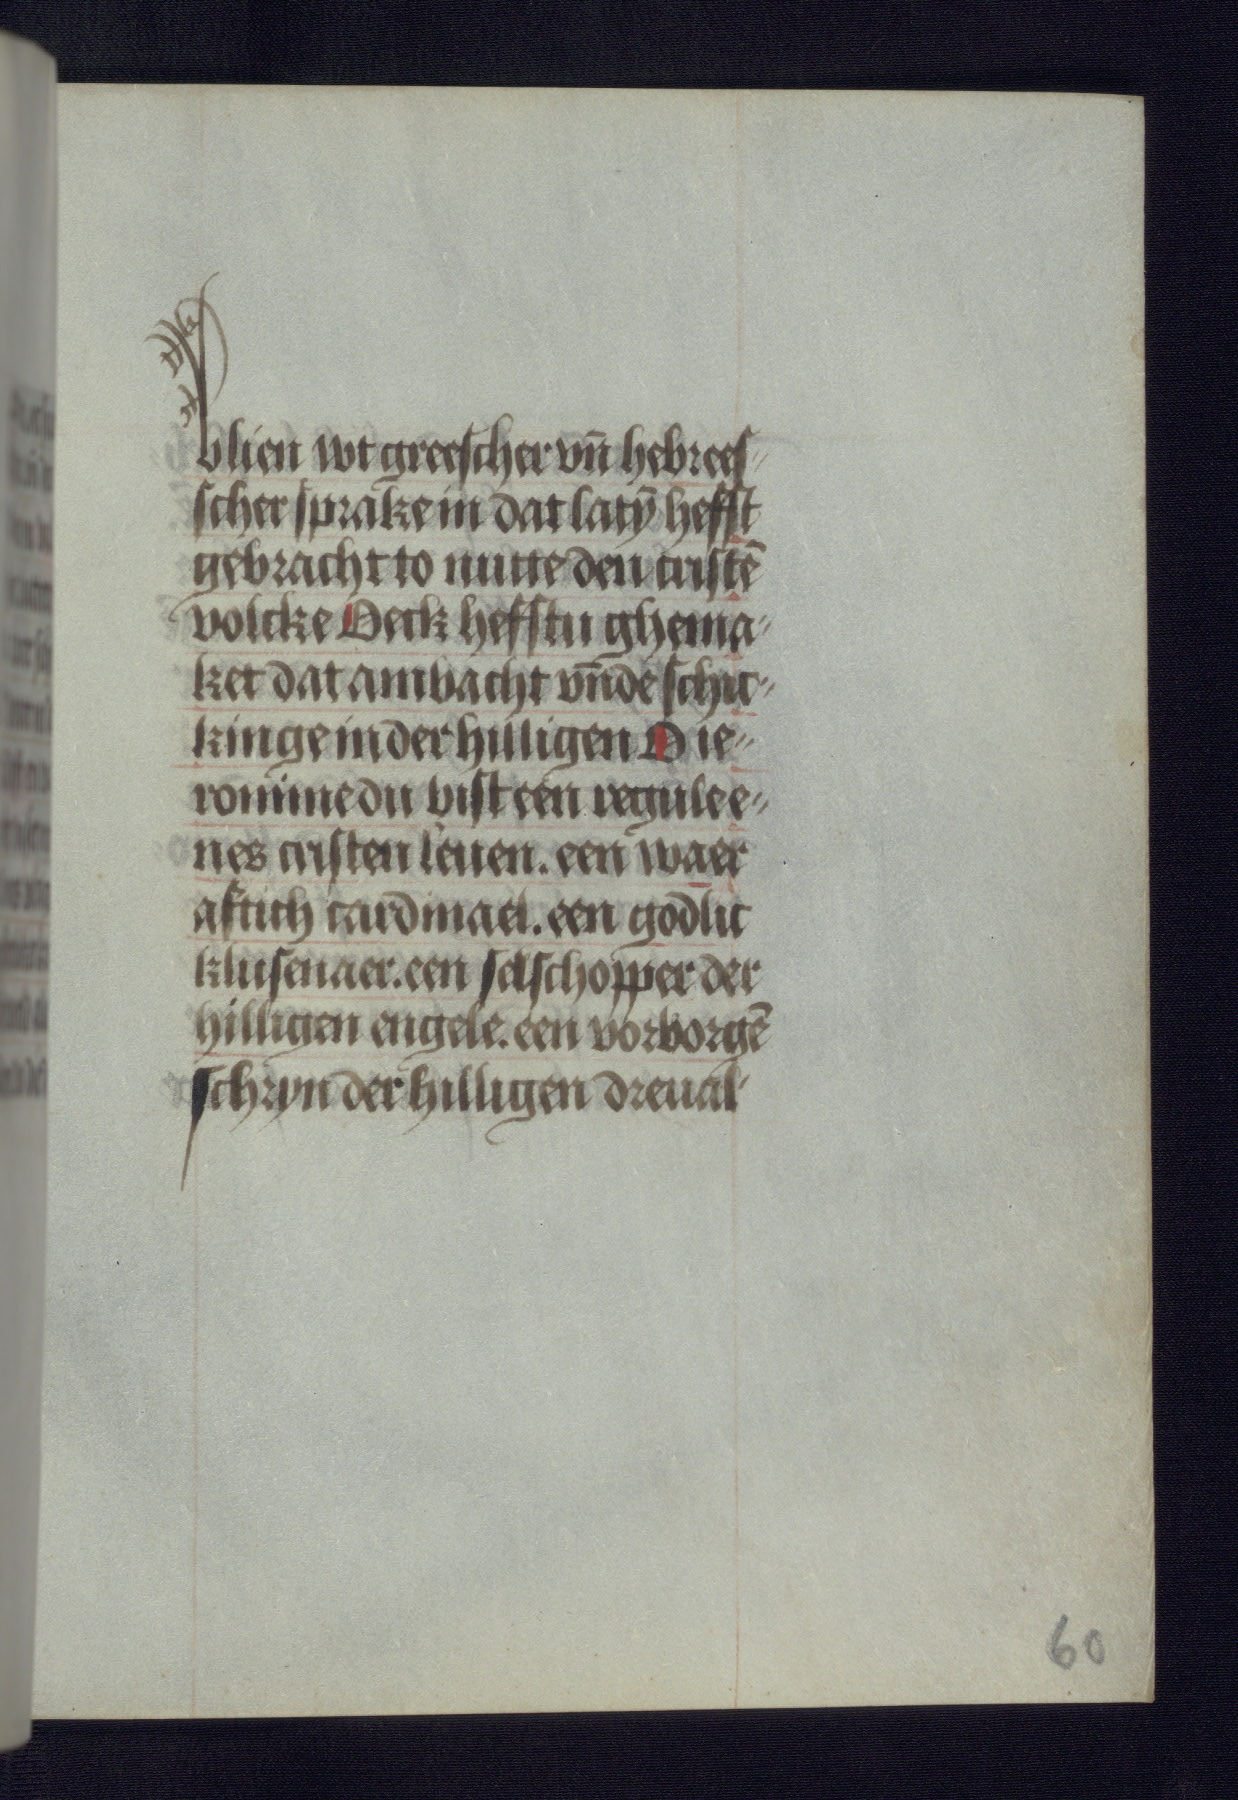 blien wt greescher vn̄ hebrees⸗
scher sprake in dat latȳ hefft
gebracht to nutte den cristē
volcke Oeck hefftu ghema⸗
ket dat ambacht vn̄de schic⸗
kinge in der hilligen O ie⸗
ronime du bist een regule e⸗
nes cristen leuen. een waer
aftich cardinael. een godlic
klusenaer. een selschopper der
hilligen engele. een vorborgē
schryn der hilligen dreual⸗
60